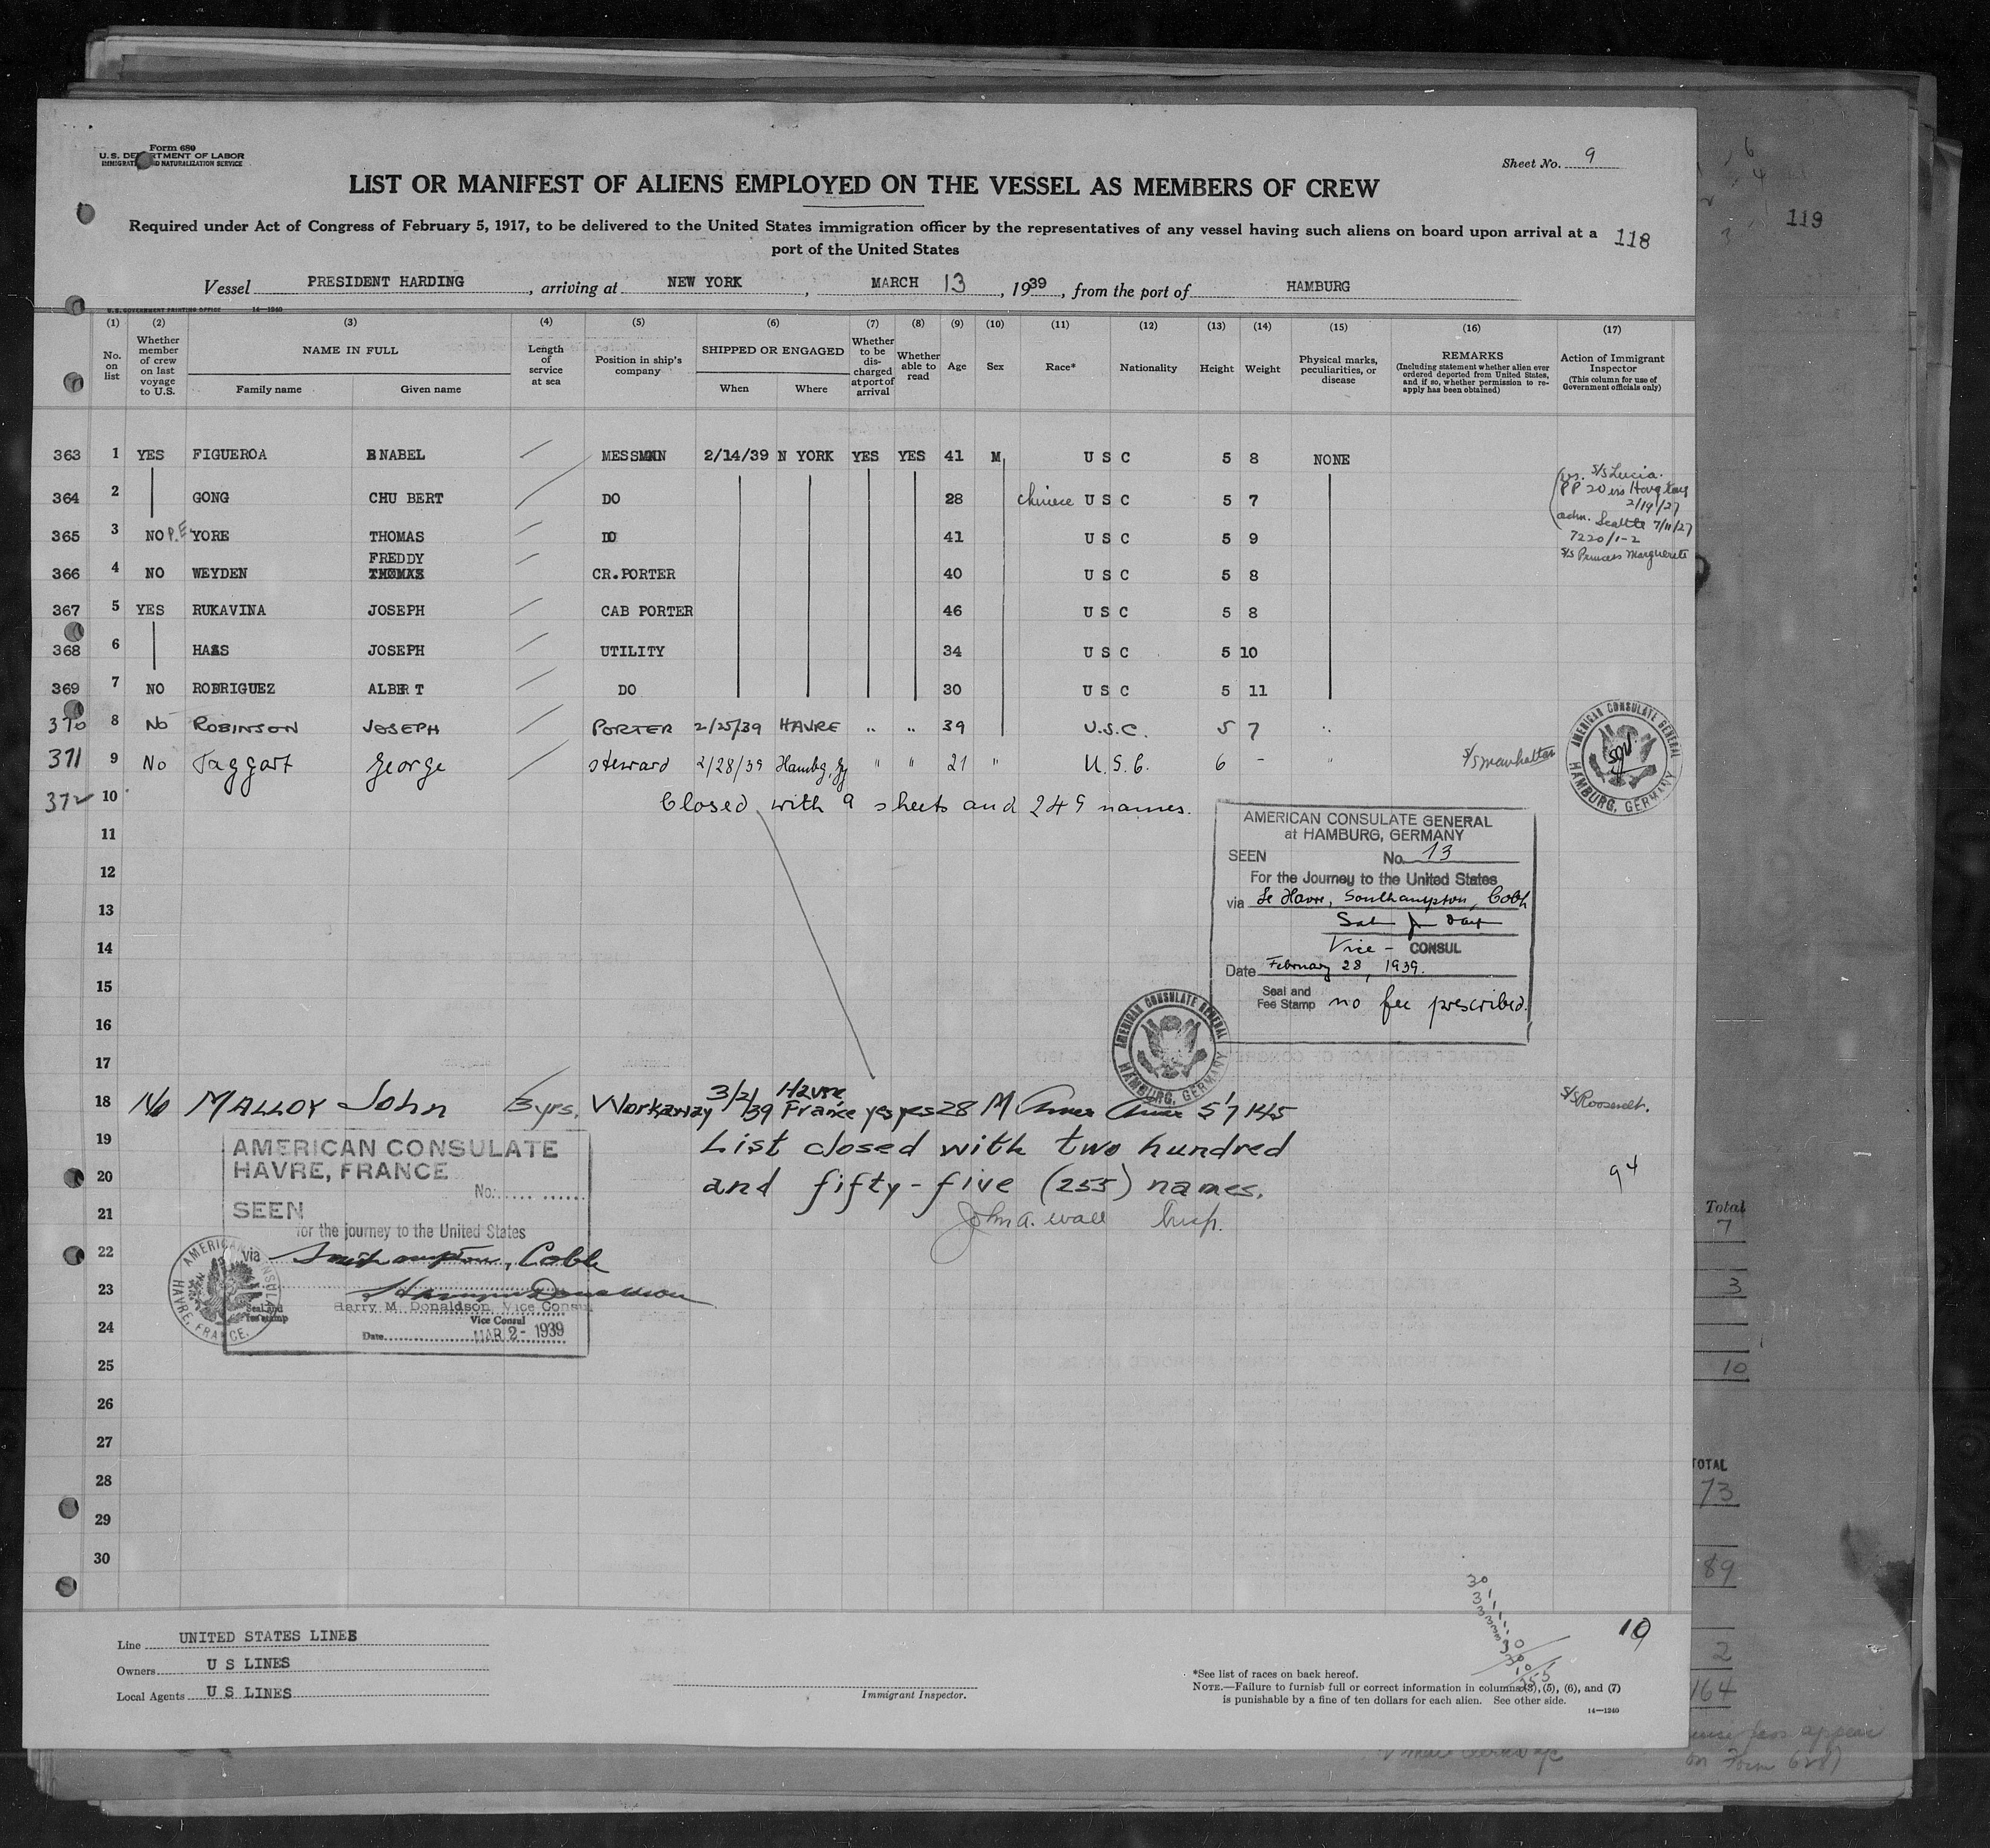 Form 680
U.S. DEPARTMENT OF LABOR
IMMIGRATION AND NATURALIZATION SERVICE
Sheet No. 9
LIST OR MANIFEST OF ALIENS EMPLOYED ON THE VESSEL AS MEMBERS OF CREW
Required under Act of Congress of February 5, 1917, to be delivered to the United States immigration officer by the representatives of any vessel having such aliens on board upon arrival at a
port of the United States
118
119
Vessel PRESIDENT HARDING, arriving at NEW YORK, MARCH 13, 1939, from the port of HAMBURG
U.S. GOVERNMENT PRINTING OFFICE 14—1240
(1) (2) (3) (4) (5) (6) (7) (8) (9) (10) (11) (12) (13) (14) (15) (16) (17)
No. on list
Whether member of crew on last voyage to U.S.
NAME IN FULL
Family name Given name
Length of service at sea
Position in ship's company
SHIPPED OR ENGAGED
When Where
Whether to be discharged at port of arrival
Whether able to read
Age
Sex
Race*
Nationality
Height
Weight
Physical marks, peculiarities, or disease
REMARKS
(Including statement whether alien ever ordered deported from United States, and if so, whether permission to reapply has been obtained)
Action of Immigrant Inspector
(This column for use of Government officials only)
363 1 YES FIGUEROA ENABEL MESSMAN 2/14/39 N YORK YES YES 41 M U S C 5 8 NONE
364 2 GONG CHU BERT DO 28 Chinese U S C 5 7
s/s Lucia.
PP 20 iss Hong Kong
2/19/27
adm. Seattle 7/11/27
7220/1-2
s/s Princess Marguerite
365 3 NO P.E YORE THOMAS DO 41 U S C 5 9
366 4 NO WEYDEN FREDDY THOMAS CR.PORTER 40 U S C 5 8
367 5 YES RUKAVINA JOSEPH CAB PORTER 46 U S C 5 8
368 6 HAAS JOSEPH UTILITY 34 U S C 5 10
369 7 NO RODRIGUEZ ALBERT DO 30 U S C 5 11
370 8 No ROBINSON JOSEPH PORTER 2/25/39 HAVRE " " 39 U.S.C. 5 7 "
371 9 No Taggart George steward 2/28/39 Hambg, Gy " " 21 " U.S.C. 6 - " s/s Manhattan
AMERICAN CONSULATE GENERAL
HAMBURG, GERMANY
372 10 Closed with 9 sheets and 249 names.
11
12
13
14
15
16
17
AMERICAN CONSULATE GENERAL
at HAMBURG, GERMANY
SEEN No. 13
For the Journey to the United States
via Le Havre, Southampton, Cobh
Vice - CONSUL
Date February 28, 1939.
Seal and
Fee Stamp no fee prescribed.
AMERICAN CONSULATE GENERAL
HAMBURG, GERMANY
18 No MALLOY John 3 yrs. Workaway 3/2/39 Havre France yes yes 28 M Amer Amer 5'7 145 s/s Roosevelt.
19 List closed with two hundred
20 and fifty-five (255) names.
94
21 John A. Wall Insp.
22
23
24
25
26
27
28
29
30
AMERICAN CONSULATE
HAVRE, FRANCE
No.
SEEN
for the journey to the United States
via Southampton, Cobh
Harry M. Donaldson, Vice Consul
Vice Consul
Seal and
fee stamp
Date MAR 2 - 1939
AMERICAN CONSULATE
HAVRE, FRANCE.
Total
7
3
10
TOTAL
73
89
2
164
Line UNITED STATES LINES
Owners U S LINES
Local Agents U S LINES
Immigrant Inspector.
10
255
*See list of races on back hereof.
NOTE.—Failure to furnish full or correct information in columns (3), (5), (6), and (7)
is punishable by a fine of ten dollars for each alien. See other side.
14—1240
appear
on Form 689)